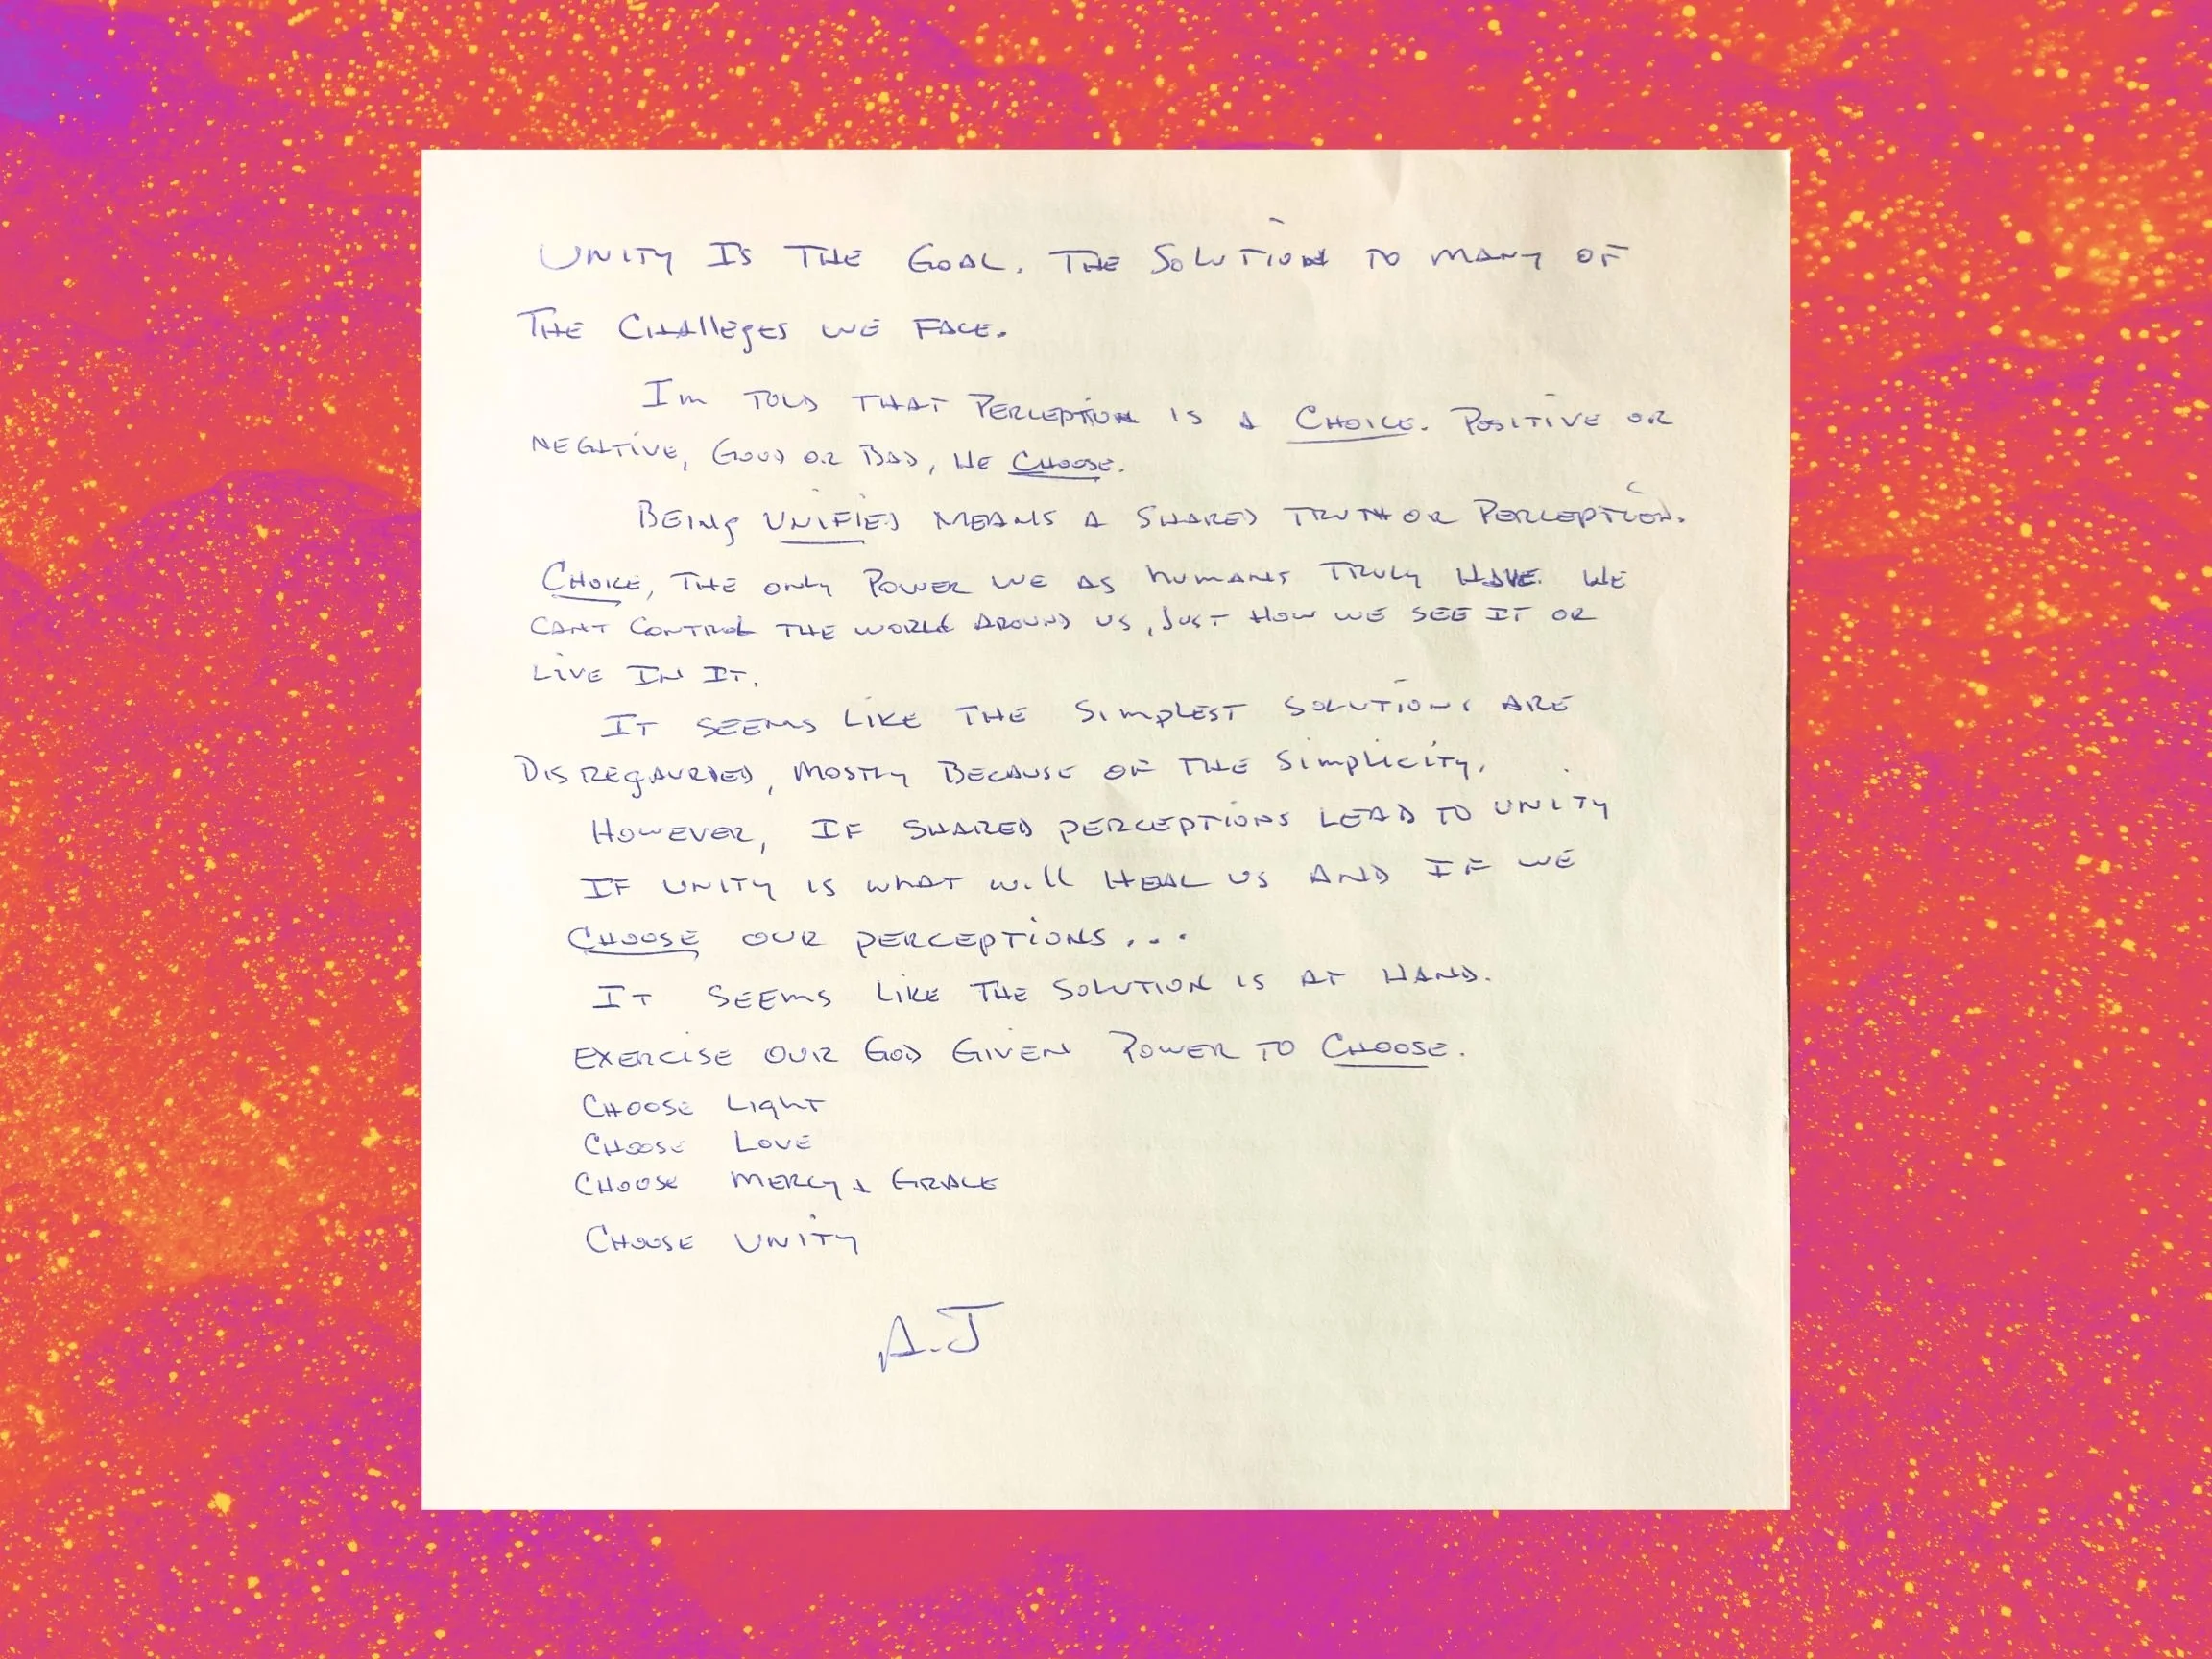 UNITY IS THE GOAL. THE SOLUTION TO MANY OF
THE CHALLEGES WE FACE.
IM TOLD THAT PERCEPTION IS A CHOICE. POSITIVE OR
NEGITIVE, GOOD OR BAD, WE CHOOSE.
BEING UNIFIED MEANS A SHARED TRUTH OR PERCEPTION.
CHOICE, THE ONLY POWER WE AS HUMANS TRULY HAVE. WE
CANT CONTROL THE WORLD AROUND US, JUST HOW WE SEE IT OR
LIVE IN IT.
IT SEEMS LIKE THE SIMPLEST SOLUTIONS ARE
DISREGAURDED, MOSTLY BECAUSE OF THE SIMPLICITY.
HOWEVER, IF SHARED PERCEPTIONS LEAD TO UNITY
IF UNITY IS WHAT WILL HEAL US AND IF WE
CHOOSE OUR PERCEPTIONS...
IT SEEMS LIKE THE SOLUTION IS AT HAND.
EXERCISE OUR GOD GIVEN POWER TO CHOOSE.
CHOOSE LIGHT
CHOOSE LOVE
CHOOSE MERCY & GRACE
CHOOSE UNITY
A.J